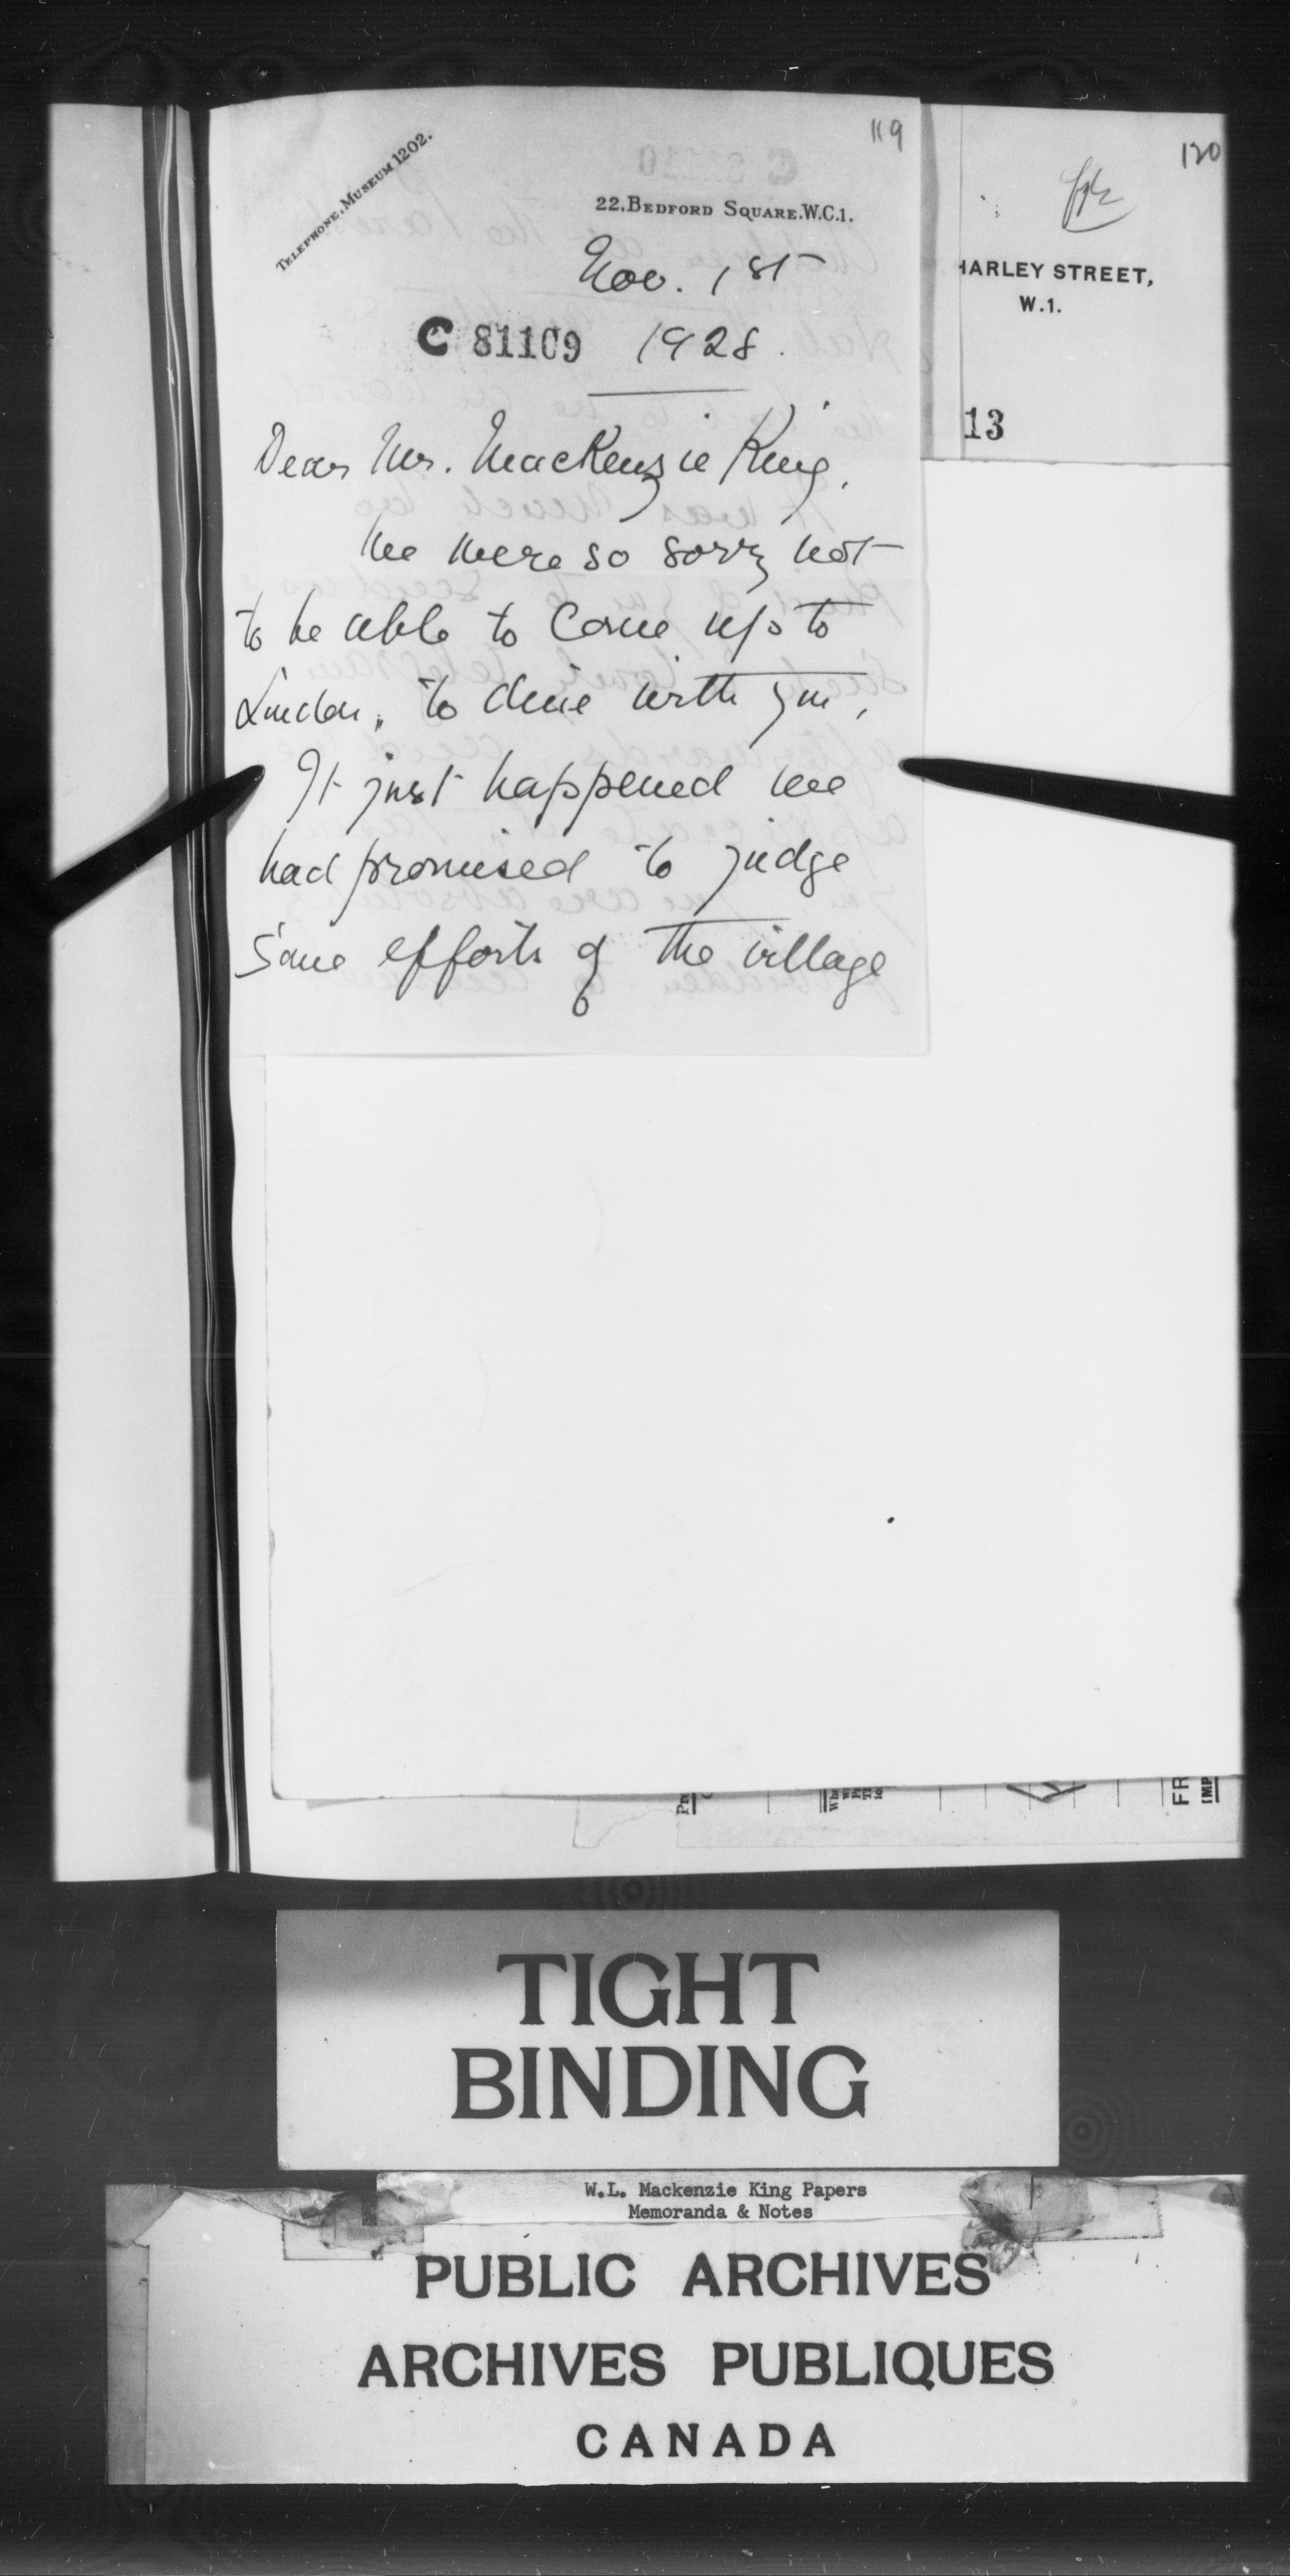 119
TELEPHONE, MUSEUM 1202.
22, BEDFORD SQUARE, W.C.1.
Nov. 1st
C 81109 1928.
Dear Mr. MacKenzie King,
We were so sorry not
to be able to come up to
London, to dine with you,
It just happened we
had promised to judge
some efforts of the village
120
HARLEY STREET,
W.1.
13
FR
IMP
TIGHT
BINDING
W.L. Mackenzie King Papers
Memoranda & Notes
PUBLIC ARCHIVES
ARCHIVES PUBLIQUES
CANADA